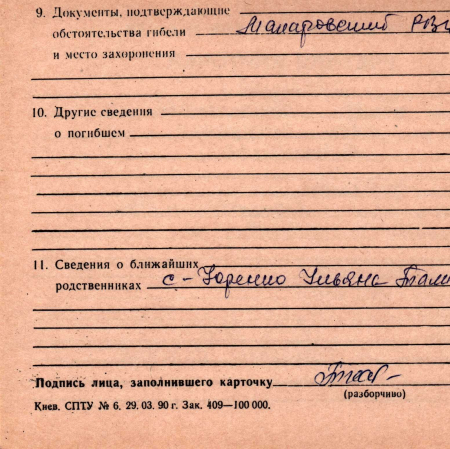 9. Документы, подтверждающие
обстоятельства гибели Макаровский РВК
и место захоронения
10. Другие сведения
о погибшем
11. Сведения о ближайших
родственниках с – Ульяна
Подпись лица, заполнившего карточку
(разборчиво)
Киев. СПТУ № 6. 29. 03. 90 г. Зак. 409—100 000.